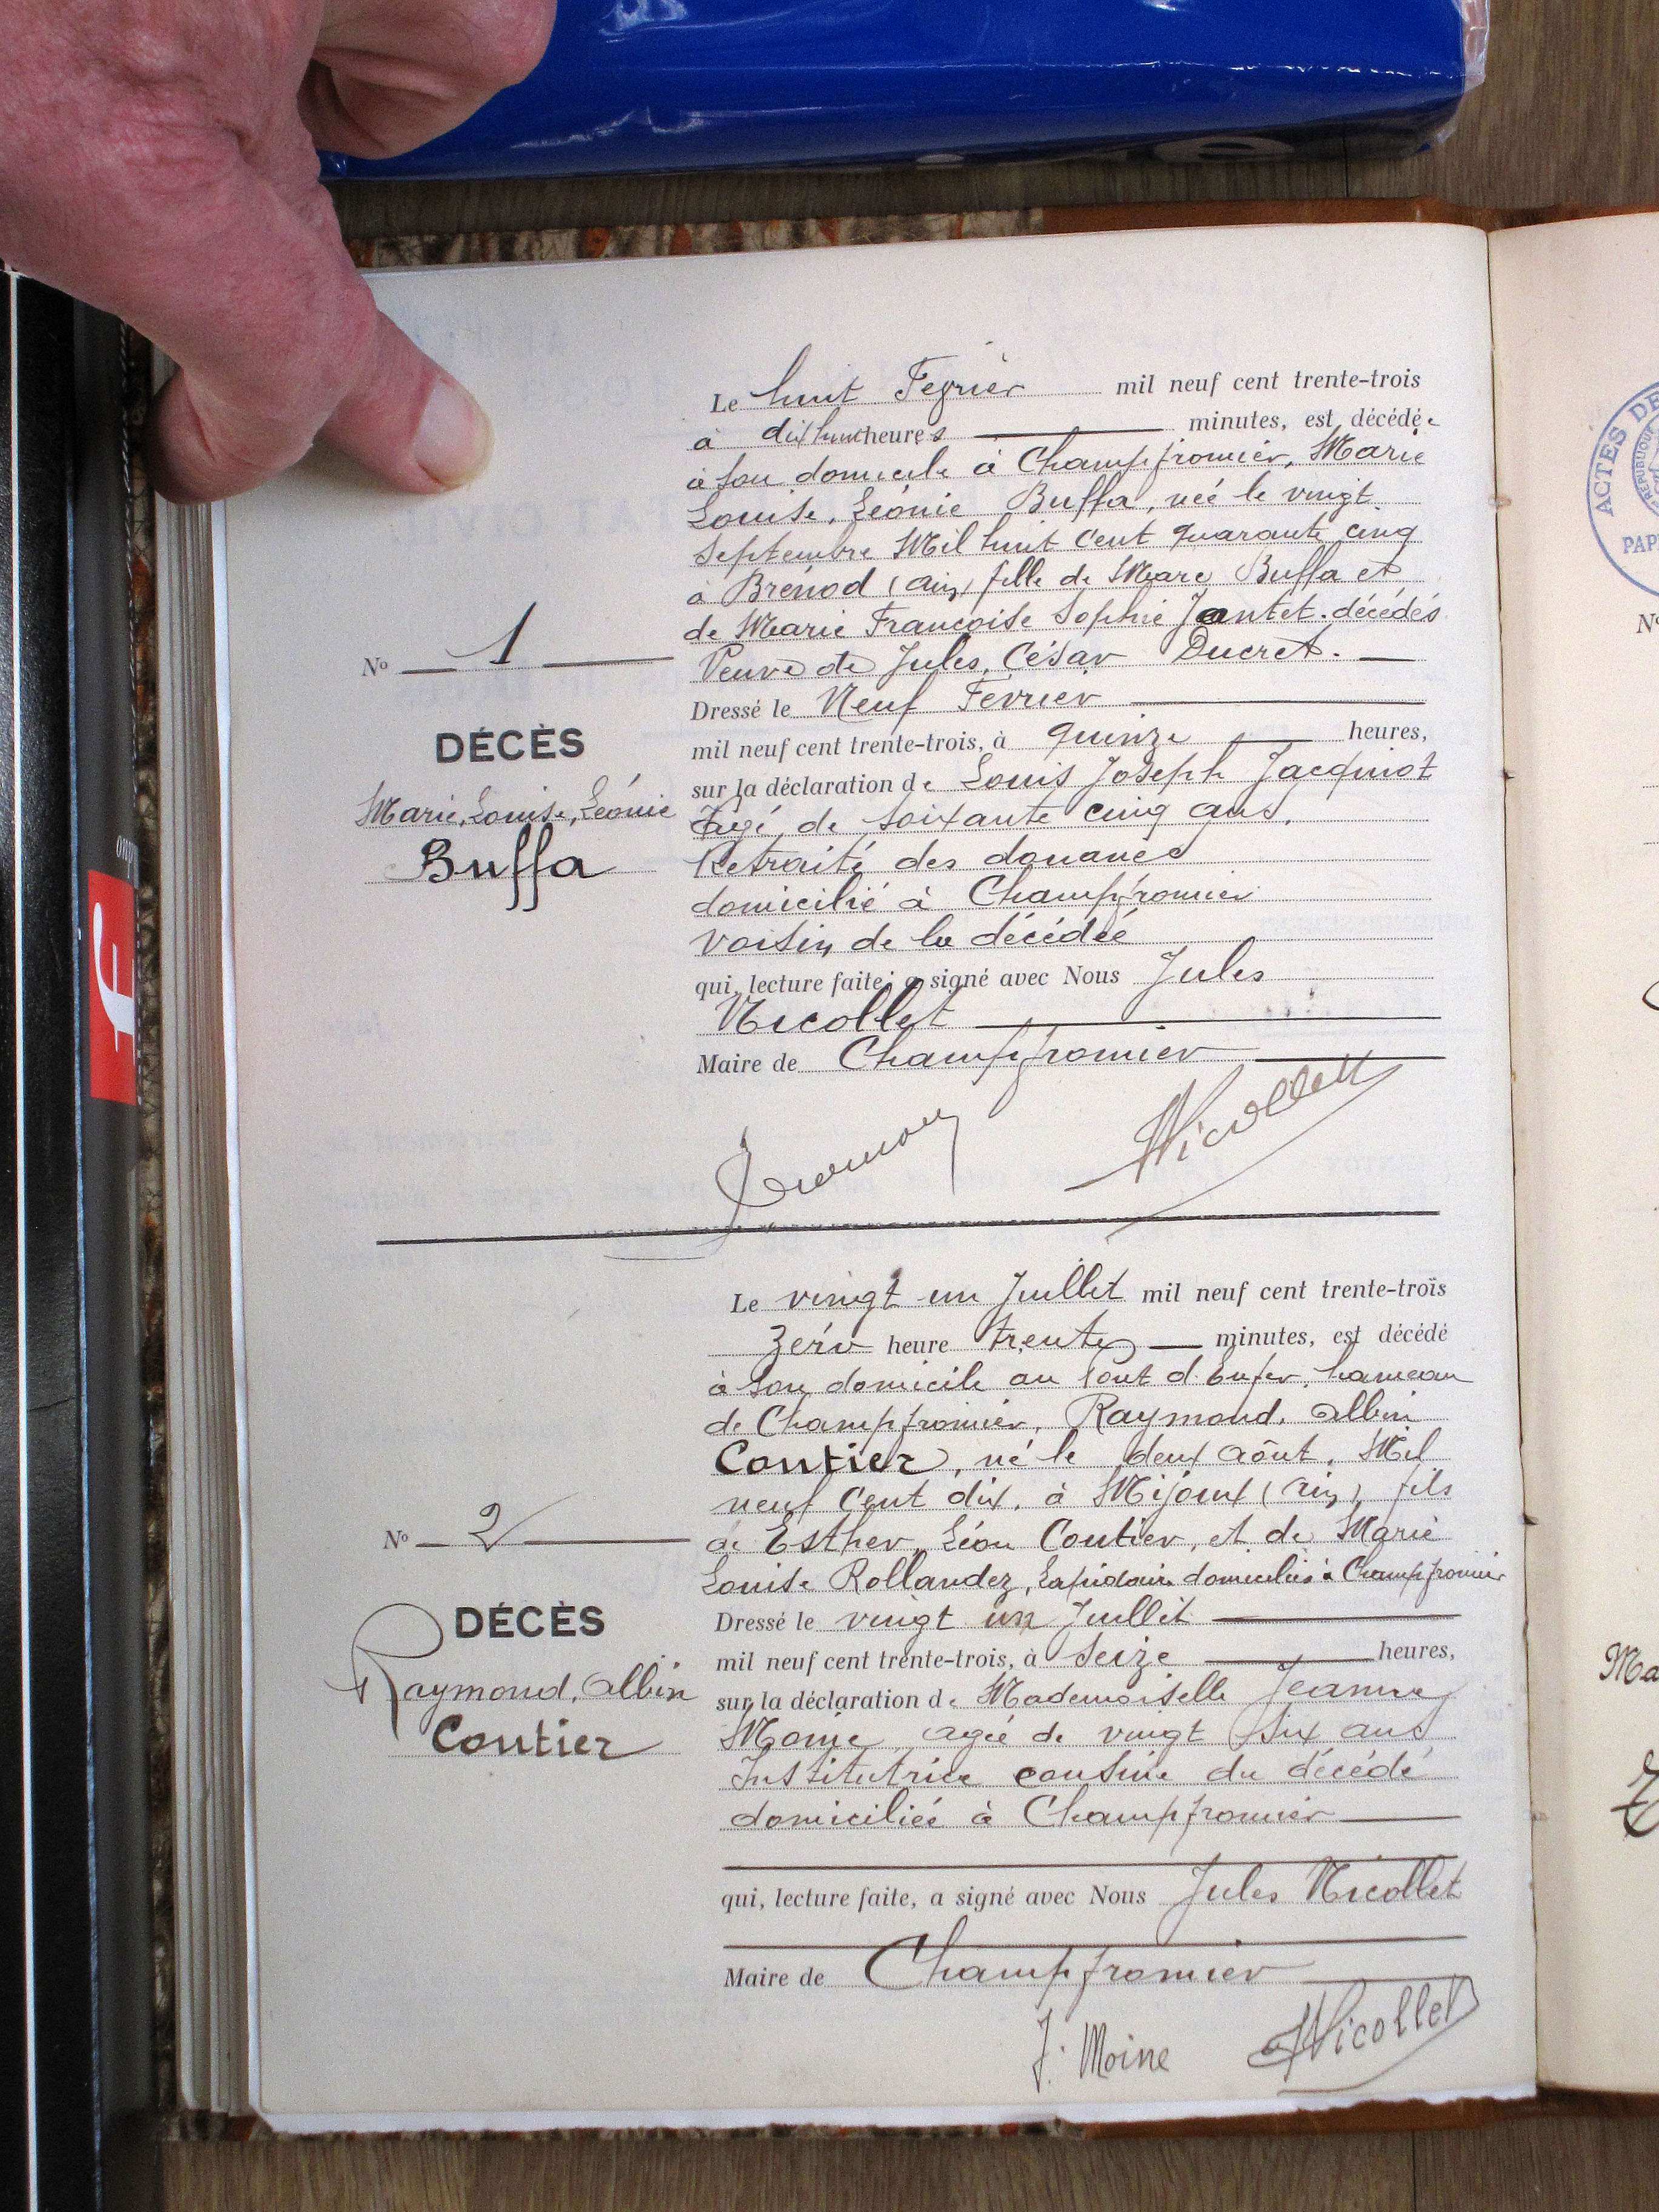 Le huit Fevrier mil neuf cent trente-trois
à dix huit heures minutes, est décédée
à son domicile à Champfromier, Marie
Louise, Léonie Buffa, née le vingt
Septembre Mil huit Cent quarante cinq
à Brénod (Ain) fille de Marc Buffa et
de Marie Françoise Sophie Jantet. décédés
Veuve de Jules, César Ducret.
Dressé le Neuf Février
mil neuf cent trente-trois, à quinze heures,
sur la déclaration de Louis Joseph Jacquiot
Agé, de soixante cinq ans,
Retraité des douanes
domicilié à Champfromier
voisin de la décédée
qui, lecture faite, a signé avec Nous Jules
Nicollet
Maire de Champfromier
Nicollet
No 1
DÉCÈS
Marie, Louise, Léonie
Buffa
Le vingt un Juillet mil neuf cent trente-trois
Zéro heure trente minutes, est décédé
à son domicile au Pont d'Enfer, hameau
de Champfromier, Raymond, Albin
Coutier, né le deux Août, Mil
neuf Cent dix, à Mijoux (Ain), fils
de Esther, Léon Coutier, et de Marie
Louise Rollandez, Lapidaire domiciliés à Champfromier
Dressé le vingt un Juillet
mil neuf cent trente-trois, à Seize heures,
sur la déclaration de Mademoiselle Jeanne
Moine agée de vingt six ans
Institutrice cousine du décédé
domiciliée à Champfromier
qui, lecture faite, a signé avec Nous Jules Nicollet
Maire de Champfromier
J. Moine Nicollet
No 2
DÉCÈS
Raymond, Albin
Coutier
ACTES DE
RÉPUBLIQUE
PAP
No
Ma